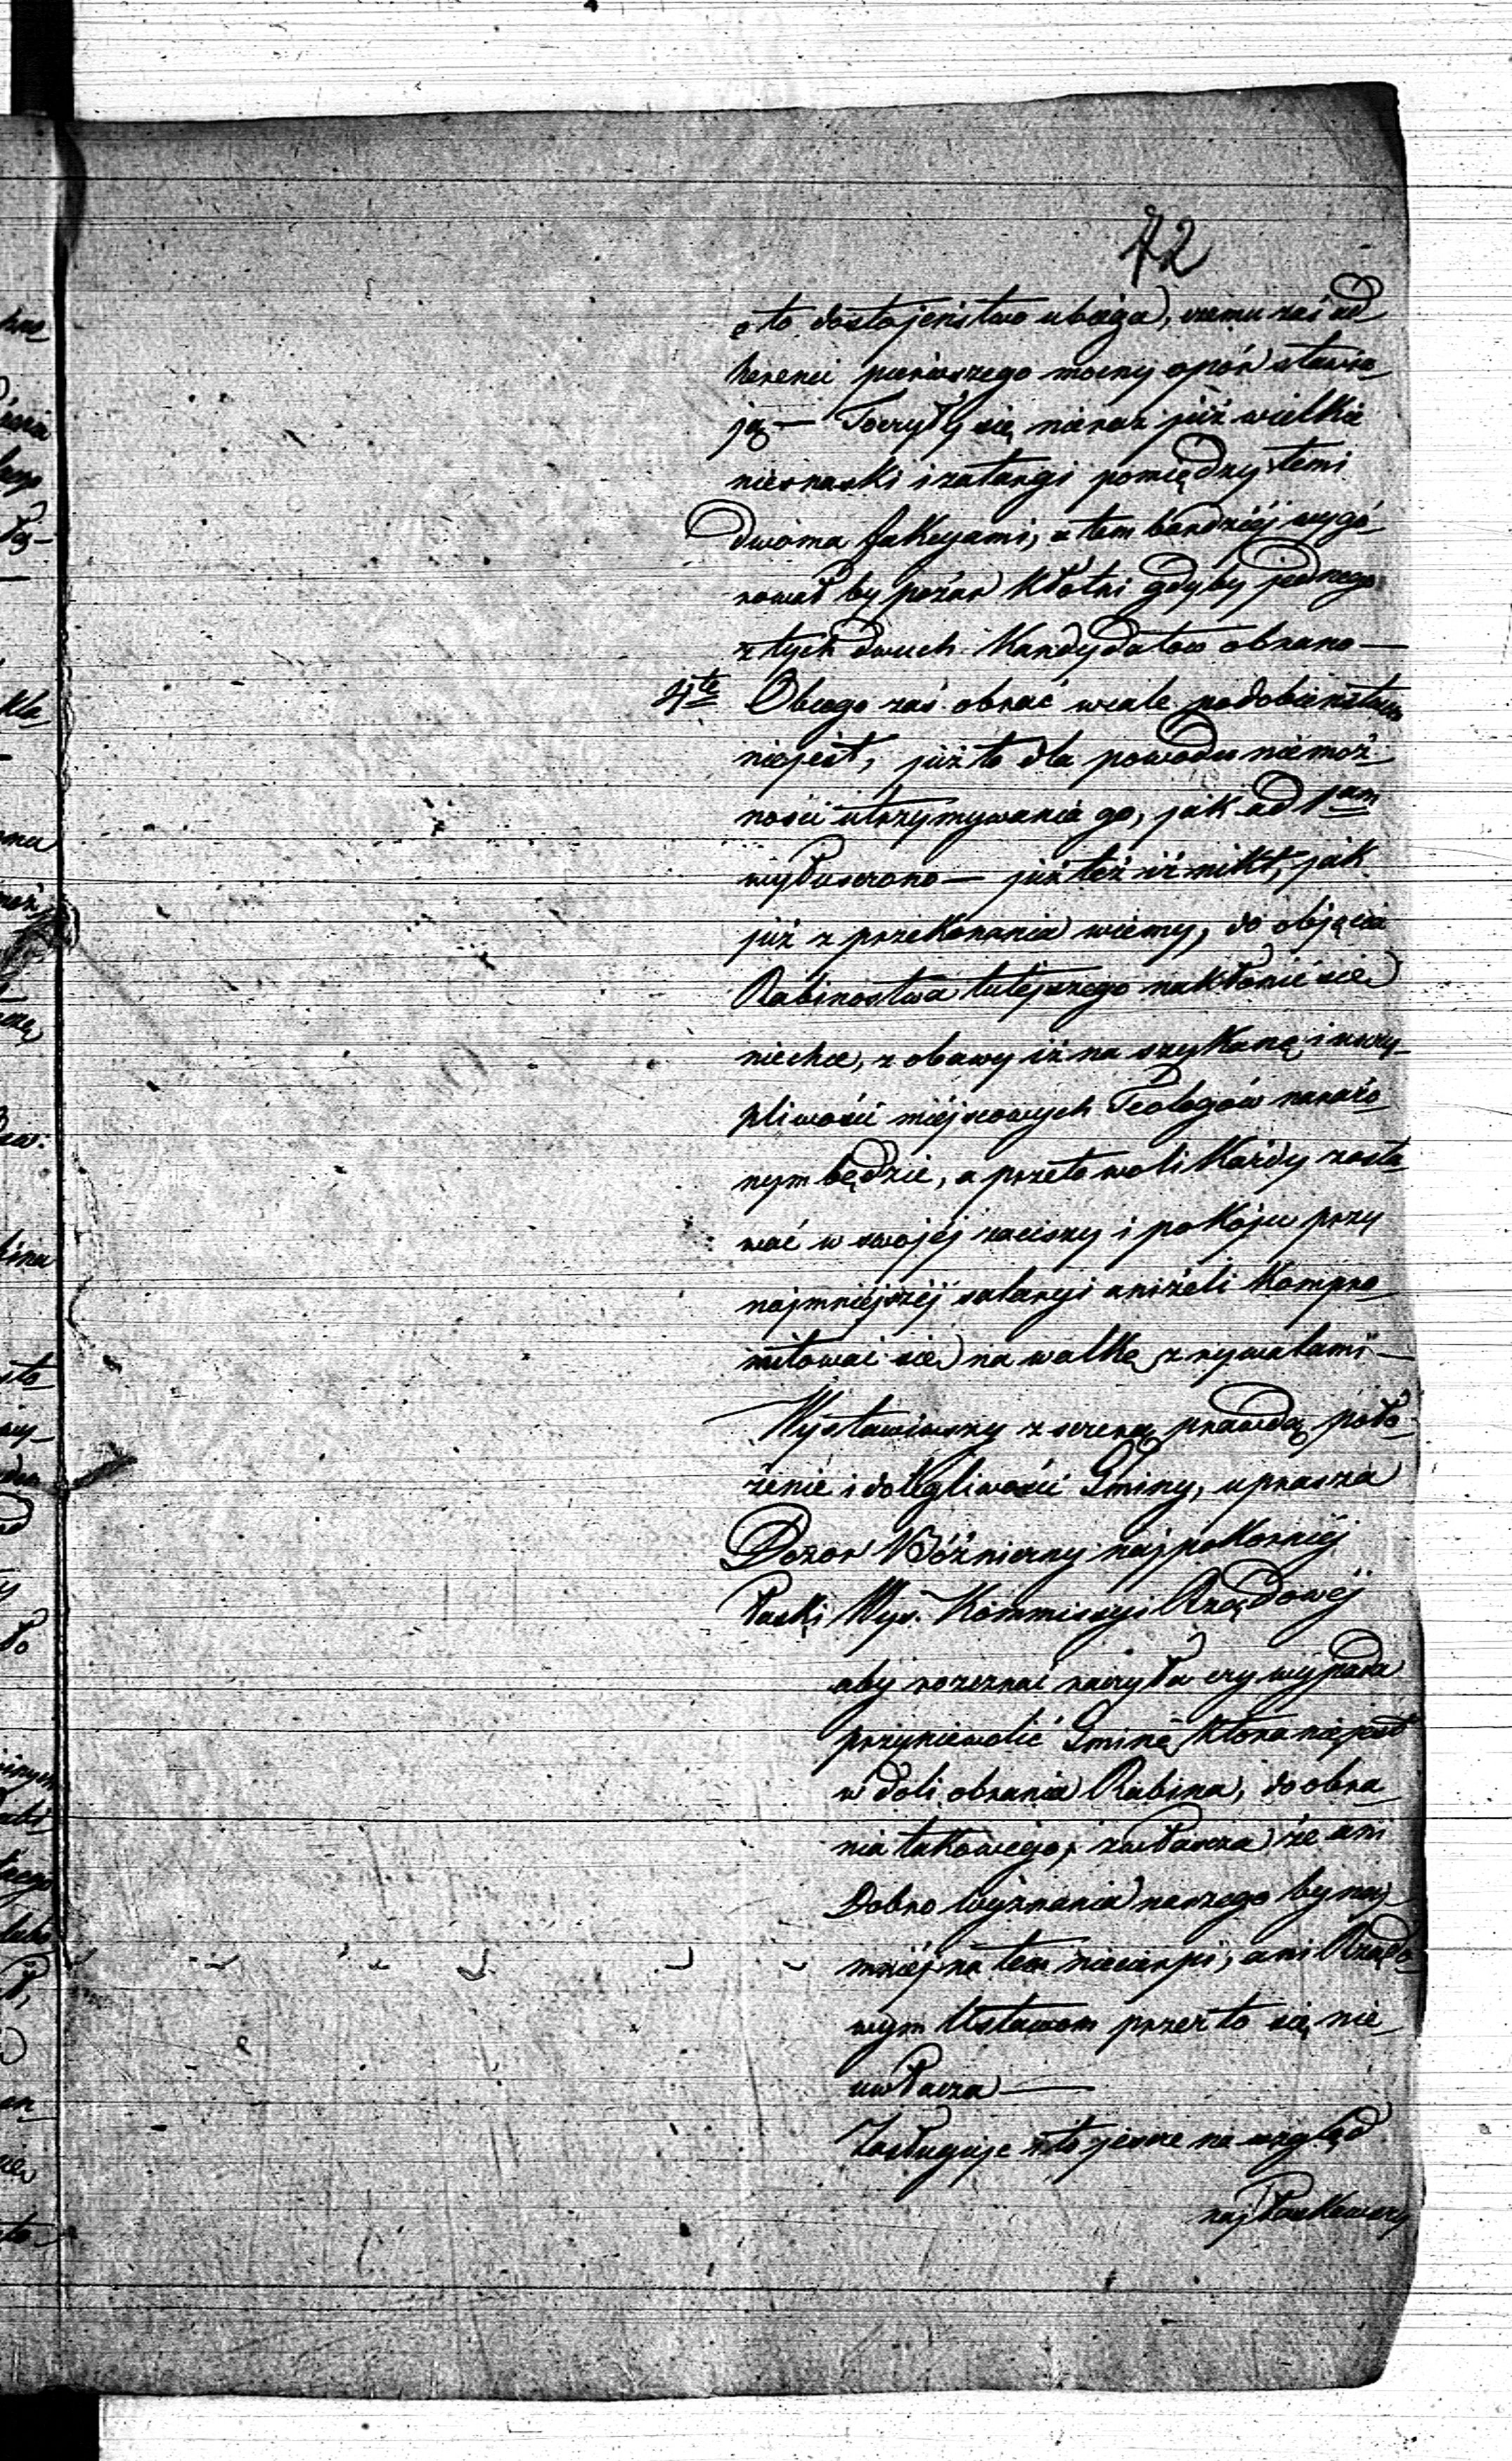 72
o to dostojeństwo ubiega, czemu zaś ad
herenci pierwszego mocny opór stawia
ją — Toczyły się nieraz już wielkie
niesnaski i zatargi pomiędzy temi
dwoma fakcyami, a tem bardziéj wygó
rował by pożar kłótni gdyby jednego
z tych dwuch Kandydatow obrano —
4te Obcego zaś obrać wcale podobieństwem
niejest, już to dla powodu niemoż
ności utrzymywania go, jak ad 1am
wyłuszczono — już też iż nikt, jak
już z przekonania wiemy, do objęcia
Rabinostwa tutejszego nakłonić się
niechce, z obawy iż na szykanę i uszczy
pliwości miéjscowych Teologów narażo
nym będzie, a przeto woli każdy zosta
wać w swojéj zaciszy i pokoju przy
najmniejszéj salaryi aniżeli kompro
mitować się na walkę z rywalami —
Wystawiwszy z szczerą prawdą poło
żenie i dolegliwości Gminy, uprasza
Dozor Bóźniczny najpokorniéj
Łaski Wys. Kommissyi Rządowéj
aby rozeznać raczyła czy wypada
przyniewolić Gminę ktora niejest
w doli obrania Rabina, do obra
nia takowego, zwłaszcza że ani
Dobro Wyznania naszego bynaj
mniéj na tem niecierpi, ani Rządo
wym Ustawom przez to się nie
uwłacza —
Zasługuje to jeszcze na wzgląd
najłaskawszy